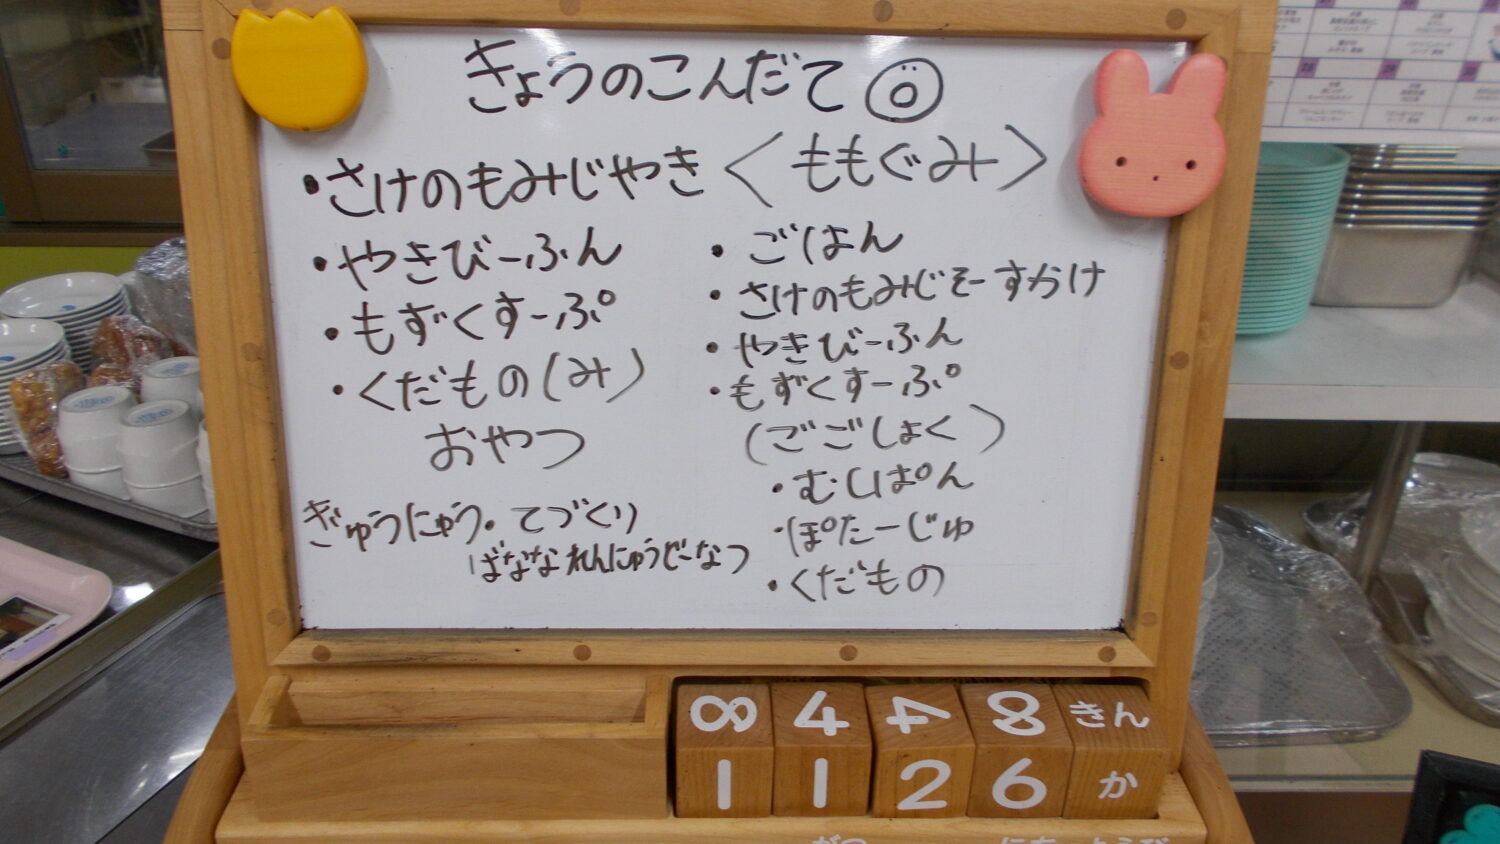 きょうのこんだて
・さけのもみじやき
・やきびーふん
・もずくすーぷ
・くだもの(み)
おやつ
ぎゅうにゅう・てづくり
ばななれんにゅうどーなつ
<ももぐみ>
・ごはん
・さけのもみじそーすかけ
・やきびーふん
・もずくすーぷ
(ごごしょく)
・むしぱん
・ぽたーじゅ
・くだもの
8 4 4 8 きん
1 1 2 6 か